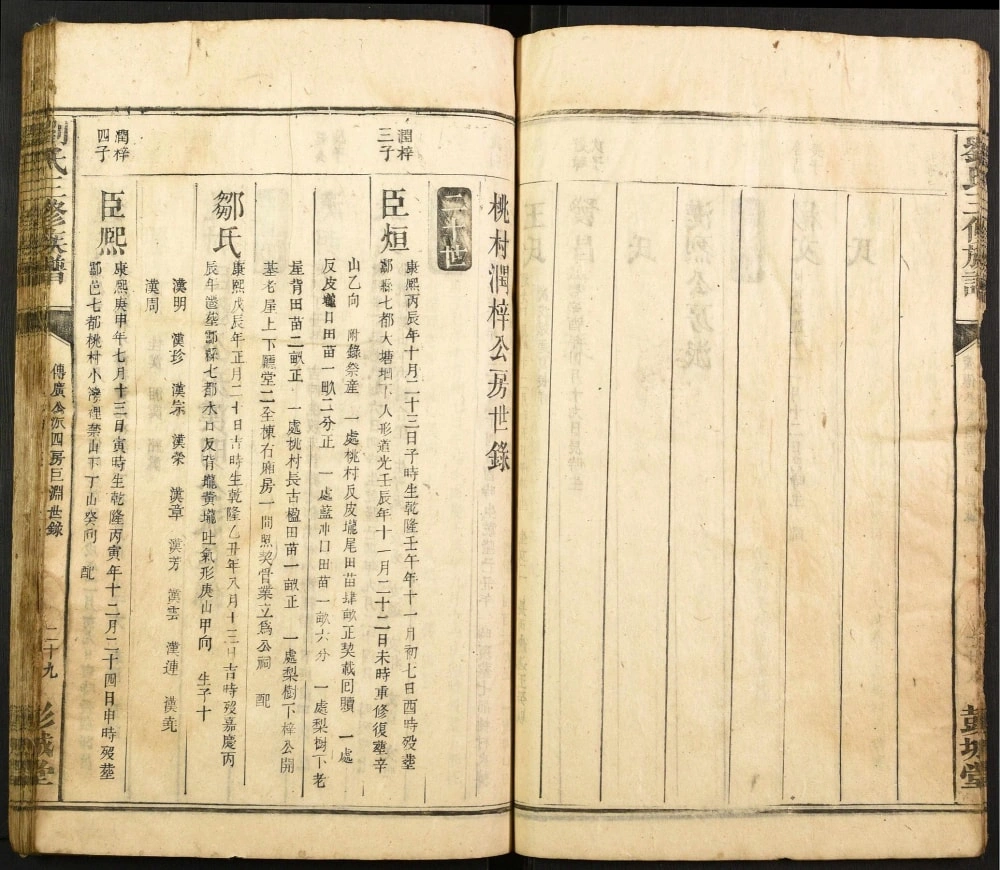 劉氏三修族譜
彭城堂
桃村潤梓公房世錄
二十世
潤梓
三子
臣烜
康熙丙辰年十月二十三日子時生乾隆壬午年十一月初七日酉時殁塟
酃縣七都大塘垇下人形道光壬辰年十一月二十二日未時重修復塟辛
山乙向 附錄祭產 一處桃村反皮壠尾田苗肆畝正契載囘贖 一處
反皮壠口田苗一畝二分正 一處藍冲口田苗一畝六分 一處梨樹下老
屋背田苗二畝正 一處桃村長古楹田苗一畝正 一處梨樹下梓公開
基老屋上下廳堂二全棟右廂房一間照契管業立爲公祠 配
鄒氏
康熙戊辰年正月二十日吉時生乾隆乙丑年八月十三日吉時殁嘉慶丙
辰年遷塟酃縣七都水口反背壠黄壠吐氣形庚山甲向 生子十
漢明 漢珍 漢宗 漢榮 漢章 漢芳 漢雲 漢連 漢堯
漢周
潤梓
四子
臣熙
康熙庚申年七月十三日寅時生乾隆丙寅年十二月二十四日申時殁塟
酃邑七都桃村小灣裡禁山下丁山癸向 配
劉氏三修族譜
傳廣公派四房巨淵世錄
二十九
彭城堂